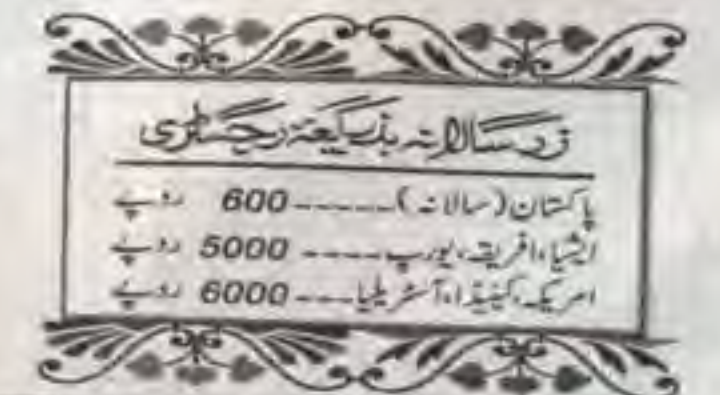 زرِ سالانہ بذریعہ رجسٹری
پاکستان (سالانہ) ------ 600 روپے
ایشیا، افریقہ، یورپ ----- 5000 روپے
امریکہ، کینیڈا، آسٹریلیا ---- 6000 روپے